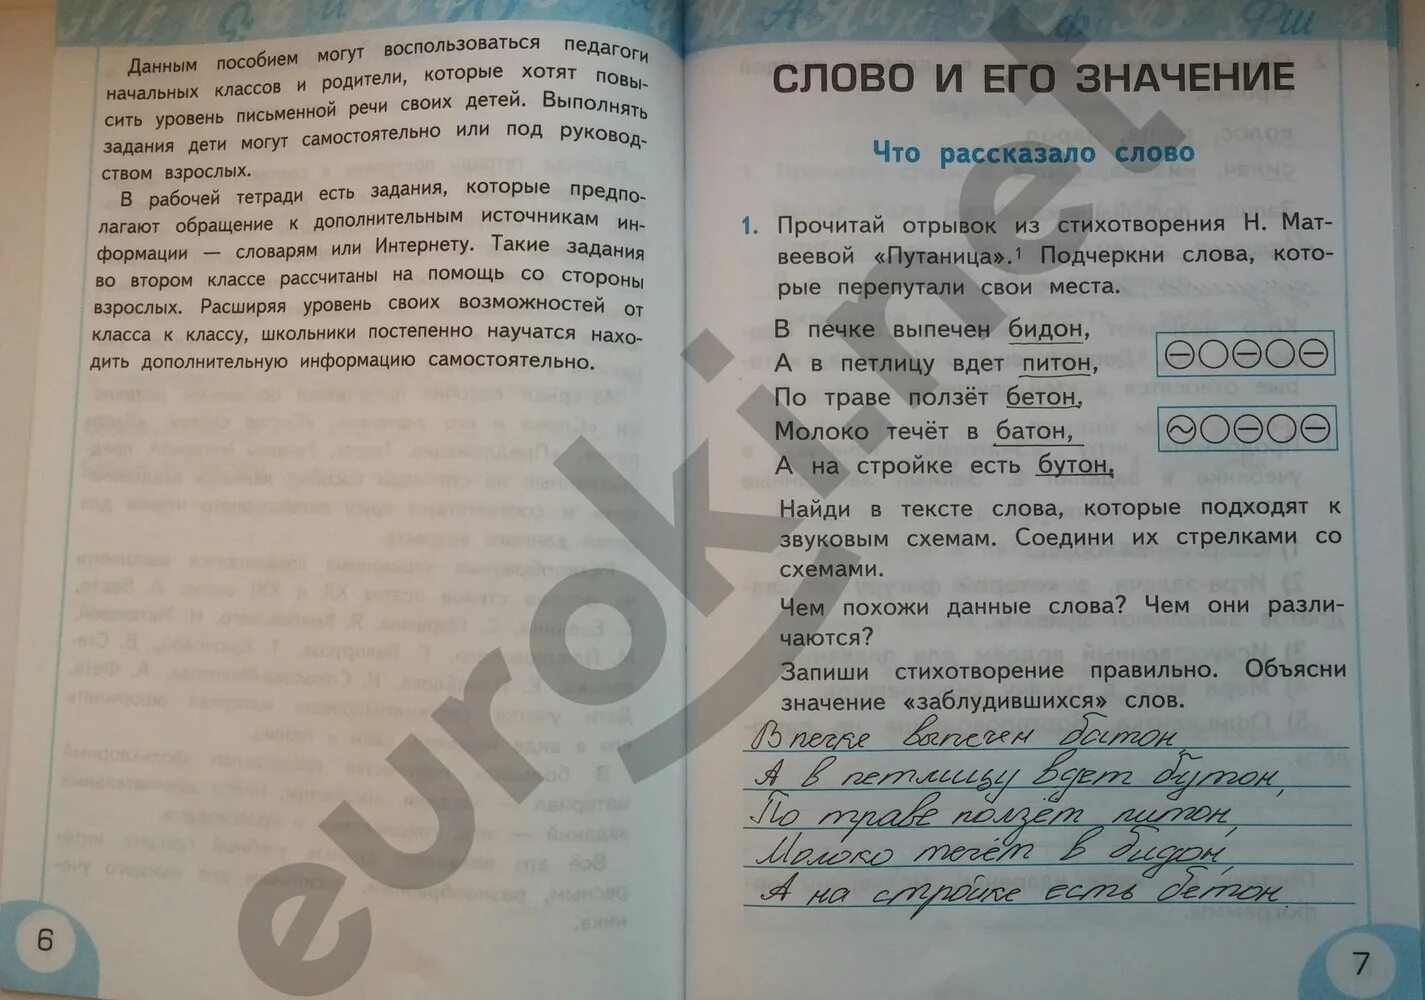 Данным пособием могут воспользоваться педагоги
начальных классов и родители, которые хотят повы-
сить уровень письменной речи своих детей. Выполнять
задания дети могут самостоятельно или под руковод-
ством взрослых.
В рабочей тетради есть задания, которые предпо-
лагают обращение к дополнительным источникам ин-
формации — словарям или Интернету. Такие задания
во втором классе рассчитаны на помощь со стороны
взрослых. Расширяя уровень своих возможностей от
класса к классу, школьники постепенно научатся нахо-
дить дополнительную информацию самостоятельно.
6
СЛОВО И ЕГО ЗНАЧЕНИЕ
Что рассказало слово
1. Прочитай отрывок из стихотворения Н. Мат-
веевой «Путаница».¹ Подчеркни слова, кото-
рые перепутали свои места.
В печке выпечен бидон,
А в петлицу вдет питон,
По траве ползёт бетон,
Молоко течёт в батон,
А на стройке есть бутон.
Найди в тексте слова, которые подходят к
звуковым схемам. Соедини их стрелками со
схемами.
Чем похожи данные слова? Чем они разли-
чаются?
Запиши стихотворение правильно. Объясни
значение «заблудившихся» слов.
В печке выпечен батон,
А в петлицу вдет бутон,
По траве ползёт питон,
Молоко течёт в бидон,
А на стройке есть бетон.
7
euroki.net